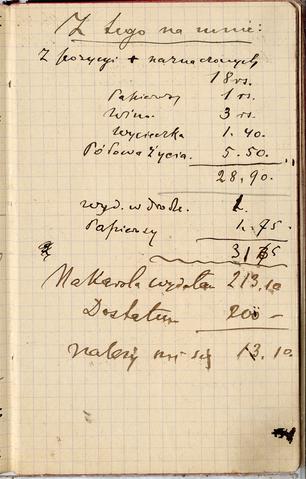 Z tego na mnie:
Z pozycyi + naznaczonych
18 rs.
Papierosy 1 rs.
Wino 3 rs.
Wycieczka 1.40.
Połowa życia. 5.50.
28,90.
wyd. w drodze. 1.
Papierosy 1.75
31 65
Na Karola wydałem 213.10
Dostałem 200 —
należy mi się 13.10.